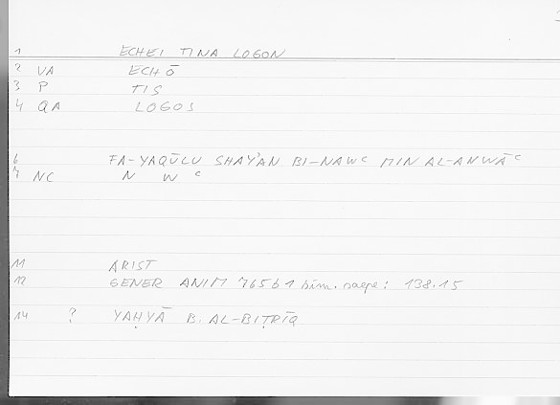 1 ECHEI TINA LOGON
2 VA ECHŌ
3 P TIS
4 QA LOGOS
6 FA-YAQŪLU SHAY'AN BI-NAWᶜ MIN AL-ANWĀᶜ
7 NC N W ᶜ
11 ARIST
12 GENER ANIM 765b1 bim. saepe: 138.15
14 ? YAḤYĀ B. AL-BIṬRĪQ